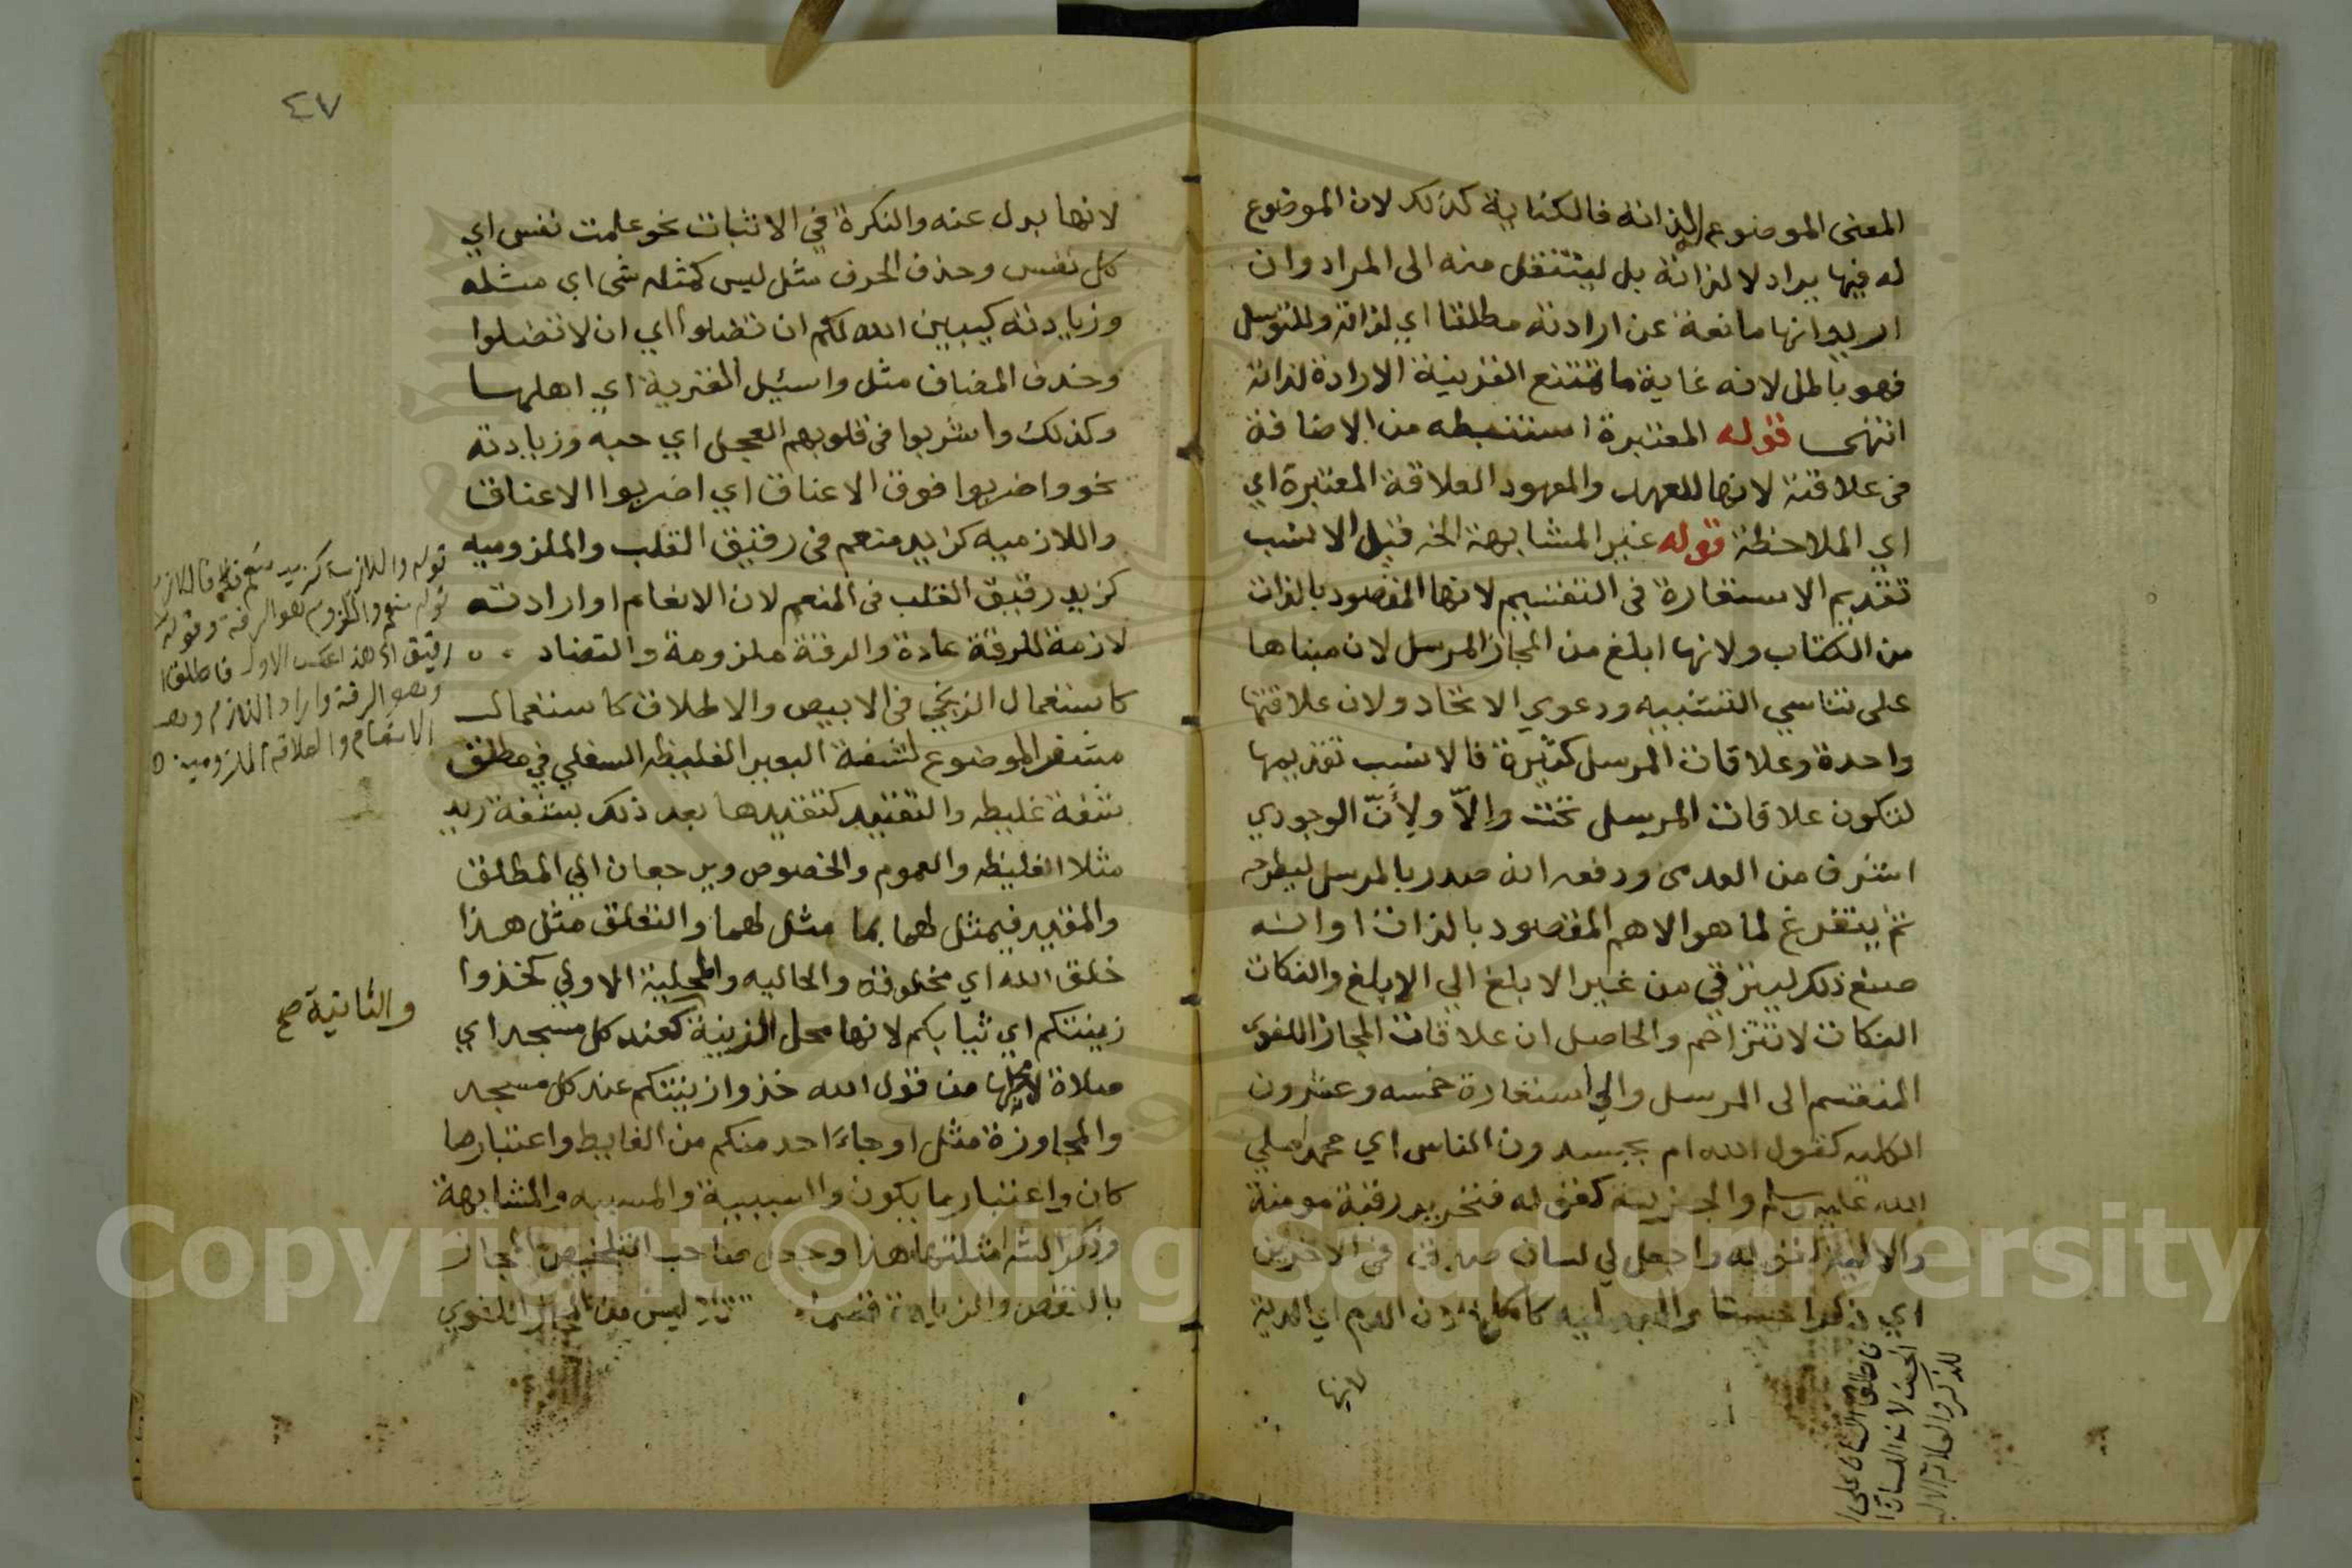 المعنى الموضوع لذاته فالكناية كذلك لان الموضوع
له فيها يراد لا لذاته بل لينتقل منه الى المراد وان
اريد انها مانعة عن ارادته مطلقا اي لذاته وللتوسل
فهو باطل لانه غاية ما تمتنع القرينة الارادة لذاته
انتهى قوله المعتبرة استنبطه من الاضافة
في علاقته لانها للعهد والمعهود العلاقة المعتبرة اي
اي الملاحظة قوله غير المشابهة الخ قيل الانسب
تقديم الاستعارة في التقسيم لانها المقصود بالذات
من الكتاب ولانها ابلغ من المجاز المرسل لان مبناها
على تناسي التشبيه ودعوي الاتحاد ولان علاقتها
واحدة وعلاقات المرسل كثيرة فالانسب تقديمها
لتكون علاقات المرسل تحت والّا ولأنّ الوجودي
اشرف من العدمى ودفعه انه صدر بالمرسل ليطرحه
ثم يتفرغ لما هو الاهم المقصود بالذات او انه
صنع ذلك ليترقي من غير الابلغ الي الابلغ والنكات
النكات لا تتزاحم والحاصل ان علاقات المجاز اللغوي
المنقسم الى المرسل والي استعارة خمسه وعشرون
الكليه كقول الله ام يحسدون الناس اي محمد صلي
الله عليه وسلم والجزيية كقوله فتحرير رقبة مومنة
والاليه كقوله واجعل لي لسان صدق في الاخرين
اي ذكرا حسنا والبدليه كاكلت الدم اي الدية
لانها
فاطلق اللسان على
الحسن لانه اللسان
للذكر والعلاقة الالية
٤٧
لانها بدل عنه والنكرة في الاثبات نحو علمت نفس اي
كل نفس وحذف الحرف مثل ليس كمثله شى اي مثله
وزيادته كيبين الله لكم ان تضلوا اي ان لا تضلوا
وحذف المضاف مثل واسئيل القرية اي اهلها
وكذلك واشربوا في قلوبهم العجل اي حبه وزيادته
نحو واضربوا فوق الاعناق اي اضربوا الاعناق
واللازميه كزيد منعم في رقيق القلب والملزوميه
كزيد رقيق القلب في المنعم لان الانعام او ارادته
لازمة للرقة عادة والرقة ملزومة والتضاد
كاستعمال الزنجي في الابيض والاطلاق كاستعمال
مشفر الموضوع لشفة البعير الغليظه السفلي في مطلق
شفة غليظه والتقييد كتقييدها بعد ذلك بشفة زيد
مثلا الغليظه والعموم والخصوص ويرجعان الي المطلق
والمقيد فيمثل لهما بما مثل لهما والتعلق مثل هذا
خلق الله اي مخلوقه والحاليه والمحلية الاولي كخذوا
زينتكم اي ثيابكم لانها محل الزينة كعند كل مسجد اي
صلاة لمحلها من قول الله خذوا زينتكم عند كل مسجد
والمجاورة مثل او جاء احد منكم من الغايط واعتبار ما
كان واعتبار ما يكون والسببية والمسببه والمشابهة
وذكر الشه امثلتها هذا وجعل صاحب التلخيص المجاز
بالنقص والزيادة قسما ليس من المجاز اللغوي
قوله واللازميه كزيد منعم
قوله منعم والملزوم هو الرقة وقوله
رقيق اي هذا عكس الاول فاطلق
وهو الرقة واراد اللازم وهو
الانعام والعلاقة الملزومية
والثانية صح
Copyright © King Saud University